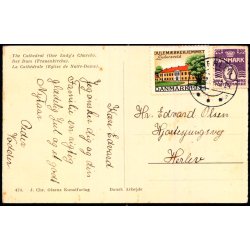 The Cathedral (Our Lady's Church).
Der Dom (Frauenkirche).
La Cathédrale (Eglise de Notre-Dame).
Kære Edvard
Jeg ønsker dig og din
Familie en rigtig
Glædelig Jul og godt
Nytaar
Peder
JULEMÆRKEHJEMMET
DANMARK 1934
7
DANMARK
Hr. Edvard Olsen
Herlev
474. J. Chr. Olsens Kunstforlag
Dansk Arbejde